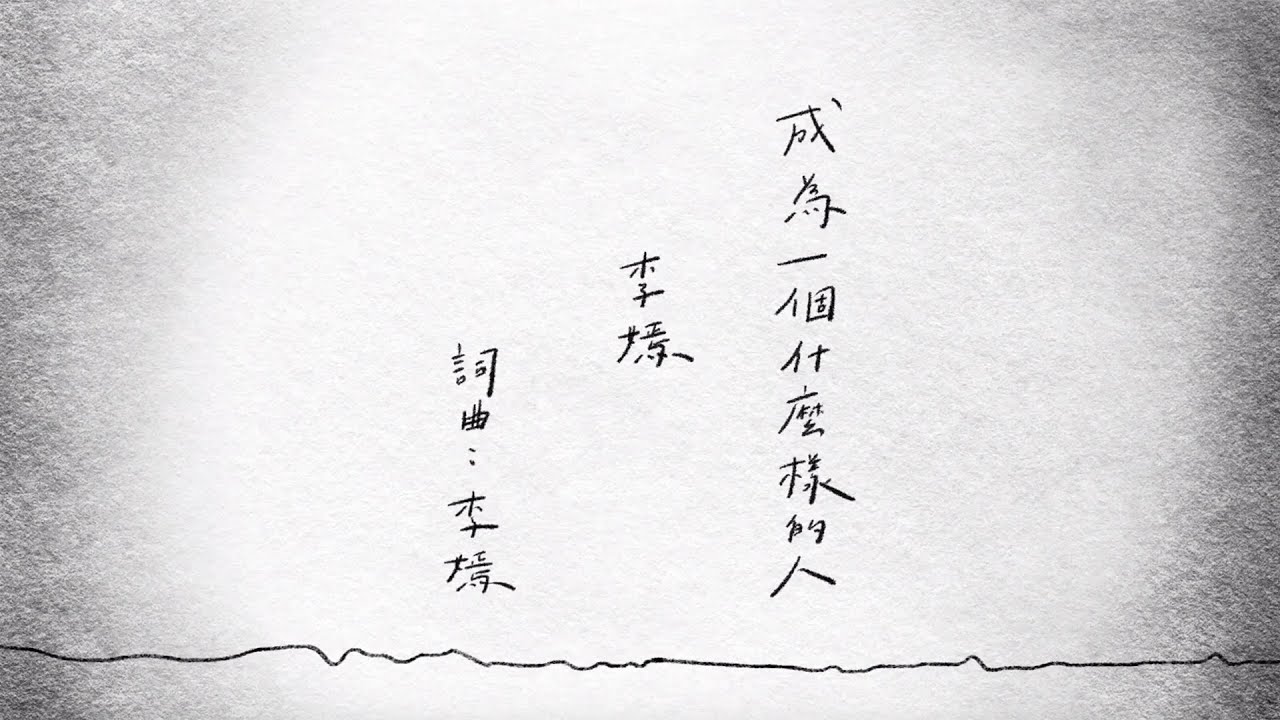 成為一個什麼樣的人
李嫣
詞曲：李嫣